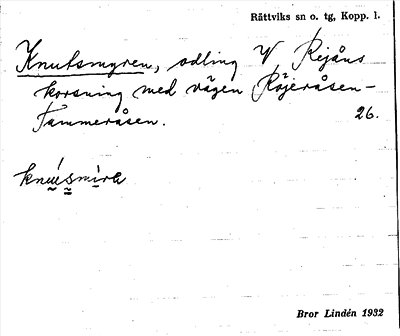 Rättviks sn o. tg, Kopp. l.
Knutsmyren, odling V Rejåns
korsning med vägen Röjeråsen-
Tammeråsen. 26.
knúsmirɐ
Bror Lindén 1932